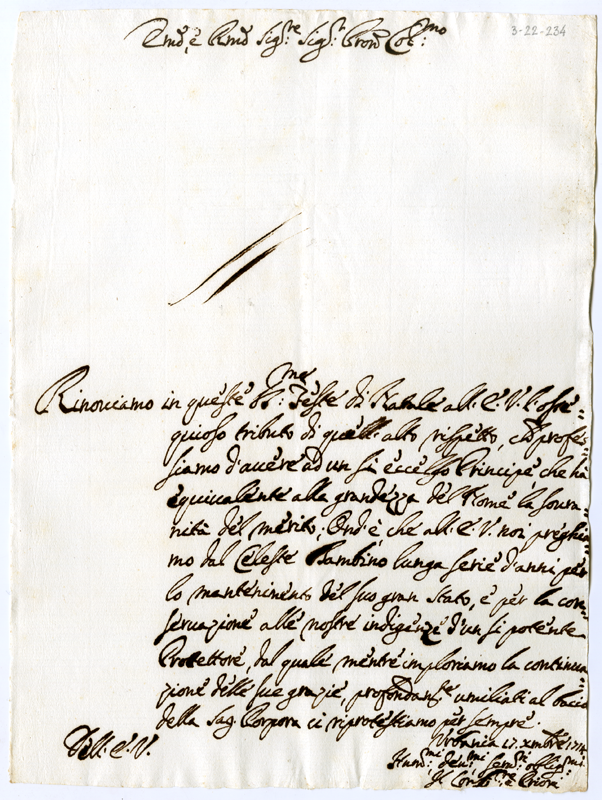 3-22-234
Em̃o, e Rmõ Sig:re Sig:r Pron̄ Col:mo
Rinoviamo in queste SS:me Feste di Natale all: E: V: l'osse=
quioso tributo di quell'alto rispetto, che profes=
siamo d'avere ad un sì eccelso Principe, che hà
equivalente alla grandezza del Nome la sovra=
nità del merito; Ond'è, che all: E: V: noi preghia=
mo dal Celeste Bambino lunga serie d'anni per
lo mantenimento del suo gran stato, e per la con=
servazione alle nostre indigenze d'un sì potente
Protettore, dal quale mentre imploriamo la continua=
zione delle sue grazie, profondam:te umiliati al bacio
della Sag: Porpora ci riprotestiamo per sempre.
Dell: E: V:
Urbania 17. Xmbre
Hum:mi Dev:mi Serv:ri Obblig:mi
Il Conf:re e Priori